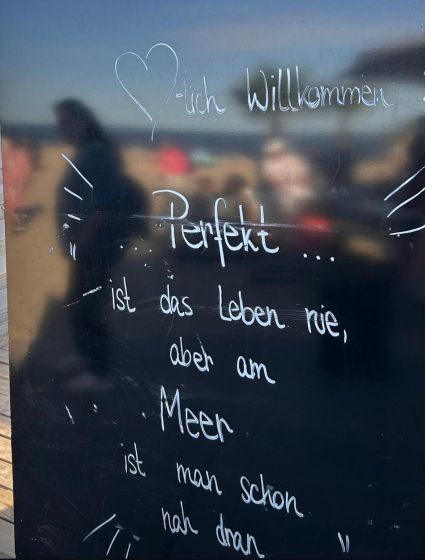 ♡-lich Willkommen
Perfekt ...
ist das Leben nie,
aber am
Meer
ist man schon
nah dran